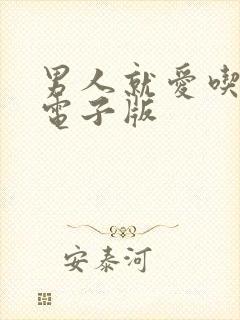 男人就愛喫
電子版
安泰河